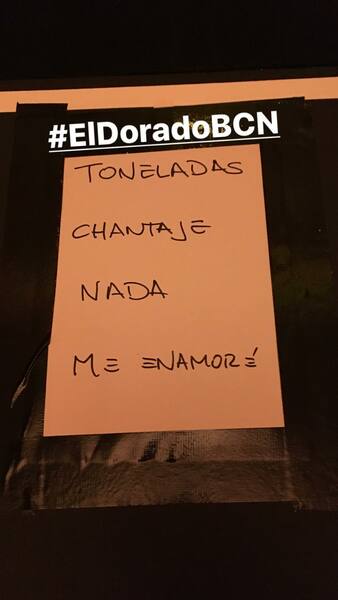 #ElDoradoBCN
TONELADAS
CHANTAJE
NADA
ME ENAMORÉ